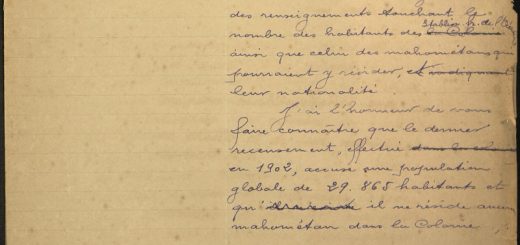 des renseignements touchant le
nombre des habitants des la Colonie
ainsi que celui des mahométans qui
pourraient y résider, et indiquant
leur nationalité.
J'ai l'honneur de vous
faire connaître que le dernier
recensement, effectué dans la colonie
en 1902, accuse une population
globale de 29.865 habitants et
qu' il ne réside aucun
mahométan dans la Colonie